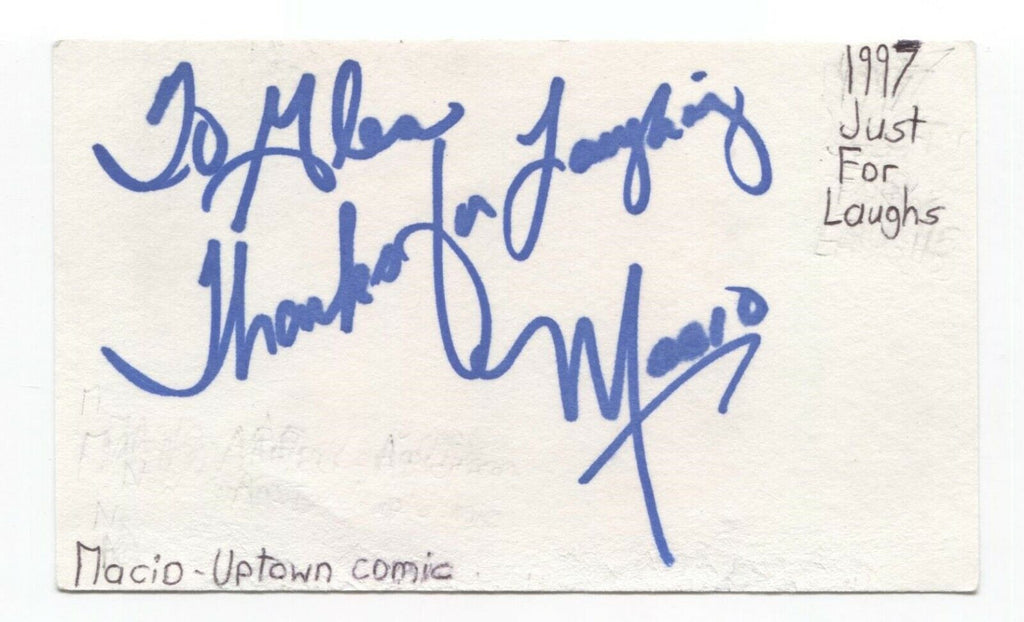 To Glen
Thanks for Laughing
Macio
1997
Just
For
Laughs
Macio - Uptown comic